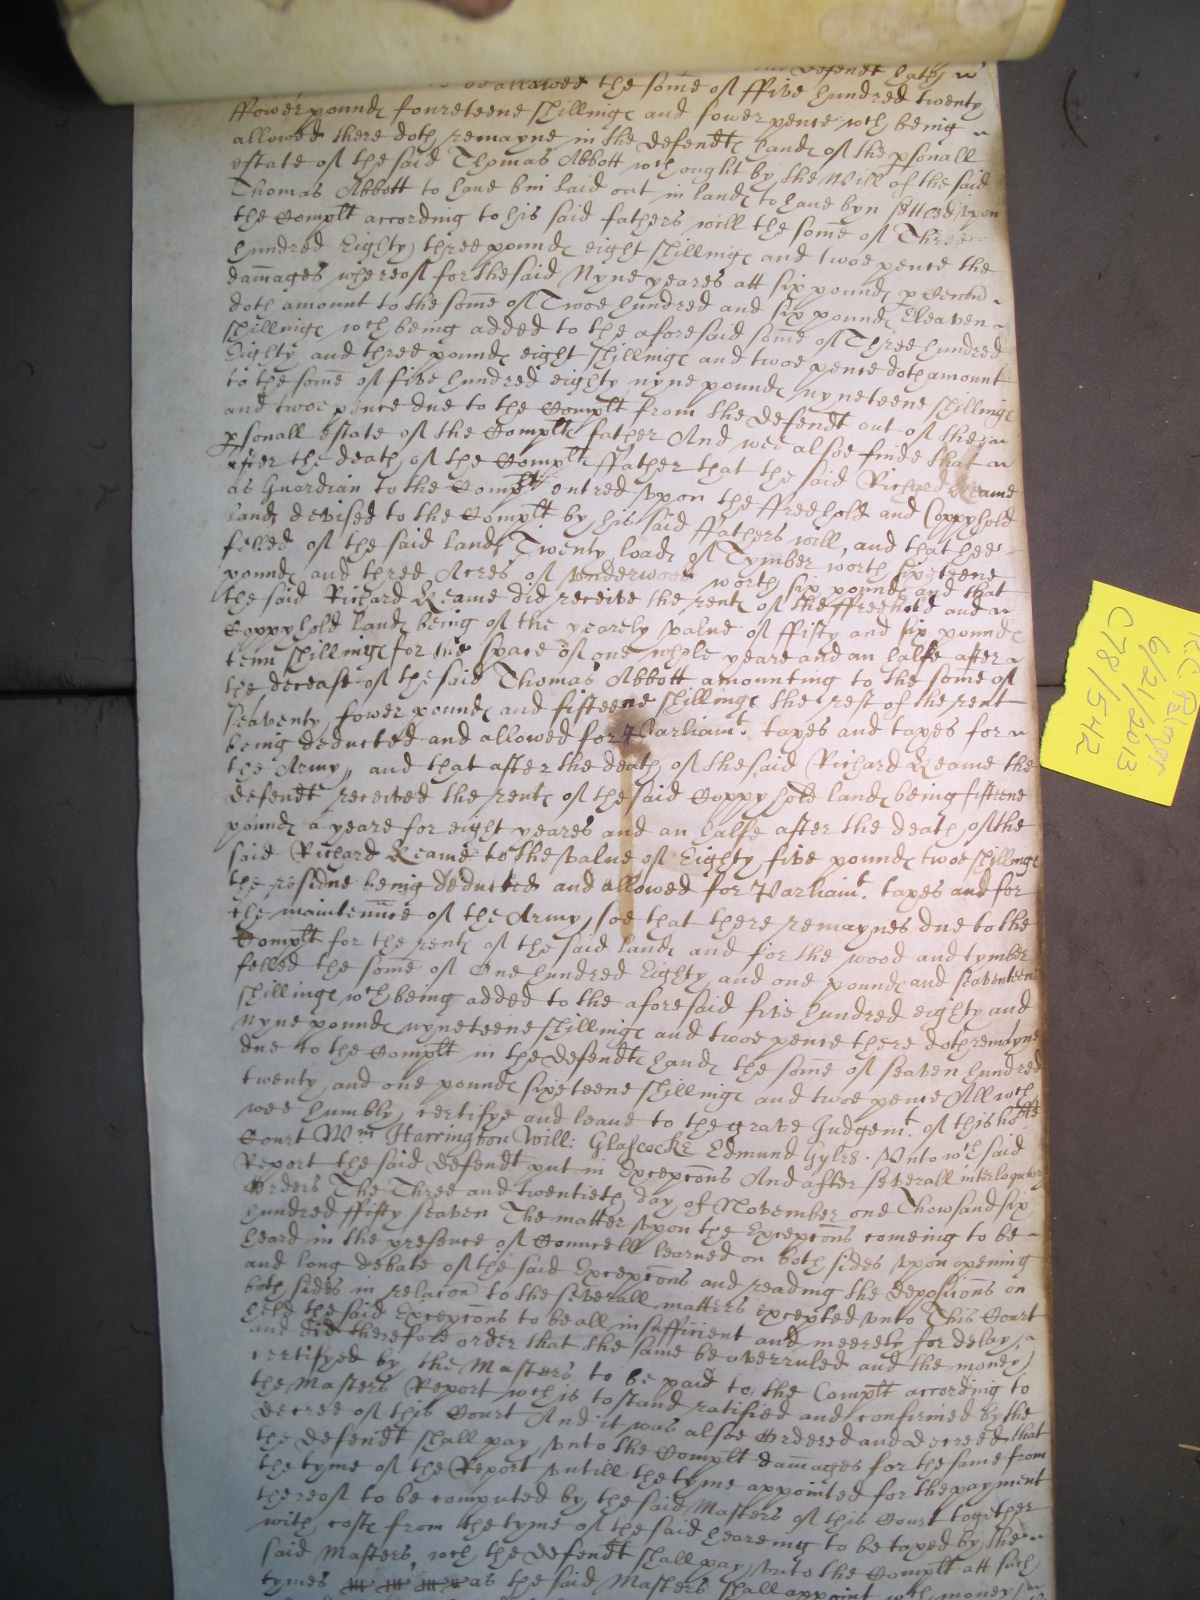 allowed the some of ffive hundred twenty
ffower pound fourteene shillings and fower pence wch being
allowed there doth remayne in the defendts hands of the psonall
estate of the said Thomas Abbott wch ought by the Will of the said
Thomas Abbott to have bin laid out in lands to have byn settled upon
the Complt according to his said fathers will the some of Three
hundred Eighty three pounds eight shillings and twoe pence the
damages whereof for the said Nyne yeares att six pounds p Centu
doth amount to the some of Twoe hundred and six pounds Eleaven
shillings wch being added to the aforesaid some of Three hundred
Eighty and three pounds eight shillings and twoe pence doth amount
to the some of five hundred eighty nyne pounds nyneteene shillings
and twoe pence due to the Complt from the defendt out of the
psonall estate of the Complts father And wee alsoe finde that
after the death of the Complts ffather that the said Richard Keame
as Guardian to the Complt entred upon the ffreehold and Coppyhold
lands devised to the Complt by his said ffathers will, and that hee
felled of the said lands Twenty loads of Tymber worth sixteene
pounds and three Acres of underwood worth six pounds and that
the said Richard Keame did receive the rents of the ffreehold and
Coppyhold lands being of the yearely value of ffifty and six pounds
tenn shillings for the space of one whole yeare and an halfe after
the decease of the said Thomas Abbott amounting to the some of
Seaventy fower pounds and fifteene shillings the rest of the rent
being deducted and allowed for Parliamt. taxes and taxes for
the Army, and that after the death of the said Richard Keame the
defendt received the rents of the said Coppyhold lands being fifteene
pounds a yeare for eight yeares and an halfe after the death of the
said Richard Keame to the value of Eighty five pounds twoe shillings
the residue being deducted and allowed for Parliamt. taxes and for
the maintennce of the Army, soe that there remaynes due to the
Complt for the rents of the said lands and for the wood and tymber
felled the some of One hundred Eighty and one pounds and seaventeene
shillings wch being added to the aforesaid five hundred eighty and
nyne pounds nyneteene shillings and twoe pence there doth remayne
due to the Complt in the defendts hands the some of seaven hundred
twenty and one pounds sixeteene shillings and twoe pence All wch
wee humbly certifye and leave to the grave Judgemt. of this hoble
Court Wm Harrington Will: Glascocke Edmund Gyles. Unto wch said
Report the said defendt put in Excepcons And after severall interloqutory
Orders The Three and twentieth day of November one Thowsand six
hundred ffifty seaven The matter upon the Excepcons comeing to be
heard in the presence of Councell learned on both sides upon opening
and long debate of the said Excepcons and reading the deposicons on
both sides in relacon to the severall matters excepted unto This Court
held the said Excepcons to be all insufficient and meerely for delay,
and did therefore order that the same be overruled and the money
certifyed by the Masters to be paid to the Complt according to
the Masters Report wch is to stand ratified and confirmed by the
decree of this Court And it was alsoe Ordered and decreed that
the defendt shall pay unto the Complt damages for the same from
the tyme of the Report untill the tyme appointed for the payment
thereof to be computed by the said Masters of this Court together
with costs from the tyme of the said heareing to be taxed by the
said Masters, wch the defendt shall pay unto the Complt att such
tymes as the said Masters shall appoint wch money
6/21/2013
C78/542